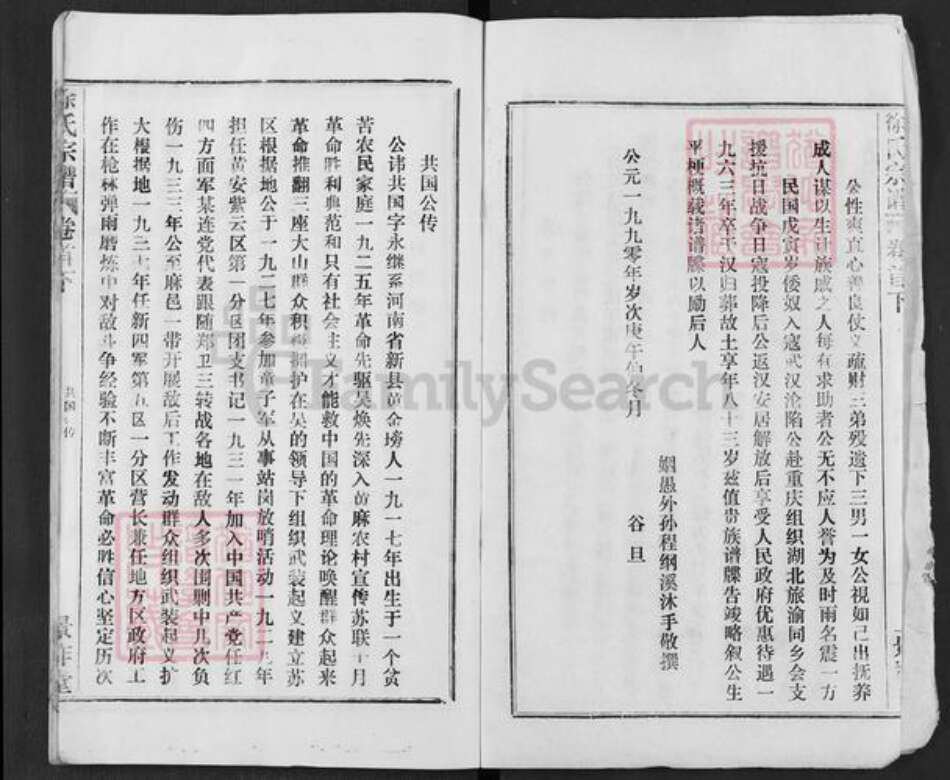 公性爽直心善良仗义疏财三弟殁遗下三男一女公视如己出抚养
成人谋以生计族戚之人每有求助者公无不应人誉为及时雨名震一方
民国戊寅岁倭奴入寇武汉沦陷公赴重庆组织湖北旅渝同乡会支
援抗日战争日寇投降后公返汉安居解放后享受人民政府优惠待遇一
九六三年卒于汉归葬故土享年八十三岁兹值贵族谱牒告竣略叙公生
平梗概载诸谱牒以励后人
公元一九九零年岁次庚午仲冬月
谷旦
姻愚外孙程纲溪沐手敬撰
徐氏宗谱 卷首下
共国公传
公讳共国字永继系河南省新县黄金塝人一九一七年出生于一个贫
苦农民家庭一九二五年革命先驱吴焕先深入黄麻农村宣传苏联十月
革命胜利典范和只有社会主义才能救中国的革命理论唤醒群众起来
革命推翻三座大山群众积极拥护在吴的领导下组织武装起义建立苏
区根据地公于一九二七年参加童子军从事站岗放哨活动一九二九年
担任黄安紫云区第一分区团支书记一九三一年加入中国共产党任红
四方面军某连党代表跟随郑卫三转战各地在敌人多次围剿中几次负
伤一九三三年公至麻邑一带开展敌后工作发动群众组织武装起义扩
大根据地一九三七年任新四军第五区一分区营长兼任地方区政府工
作在枪林弹雨磨炼中对敌斗争经验不断丰富革命必胜信心坚定历次
徐氏宗谱 卷首下
共国公传
FamilySearch